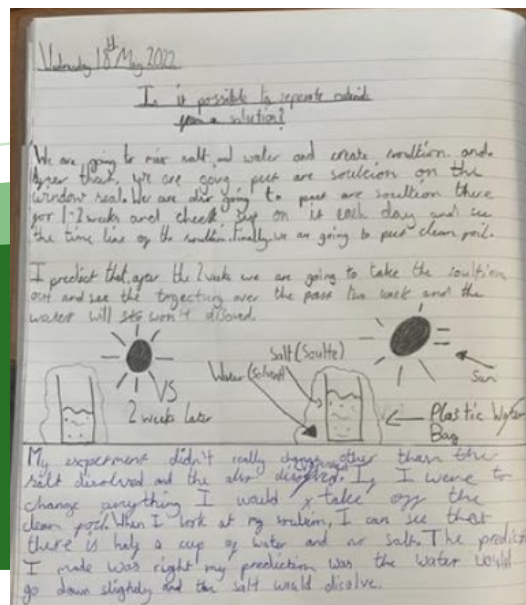 Wednesday 18th May 2022
Is it possible to separate
from a solution?
We are going to mix salt and water and create and
after that, we are going peet are soulcion on the
window seal. We are going to peet are soultion there
for 1-2 weeks and check up on it each day and see
the time line of the Finally we are going to peet clean
I predict that, after the 2 weeks we are going to take the soultion
out and see the over the past two week and the
water will won't
VS
2 weeks later
Salt (Soulte)
Water (solvent)
Sun
Plastic
Bag
My experiment didn't really other than the
salt disolved and the also If I were to
change anything I would take off the
clean When I look at my I can see that
there is half a cup of water and no salt. The
I made was right my prediction was the water would
go down slightly and the salt would disolve.